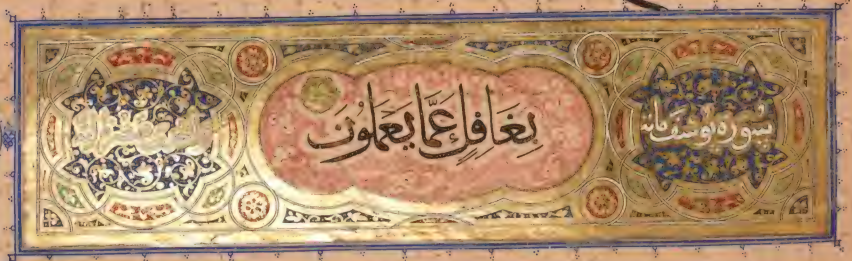 سُورَة يُوسُف مائة بِغَافِلٍ عَمَّا يَعۡمَلُونَ